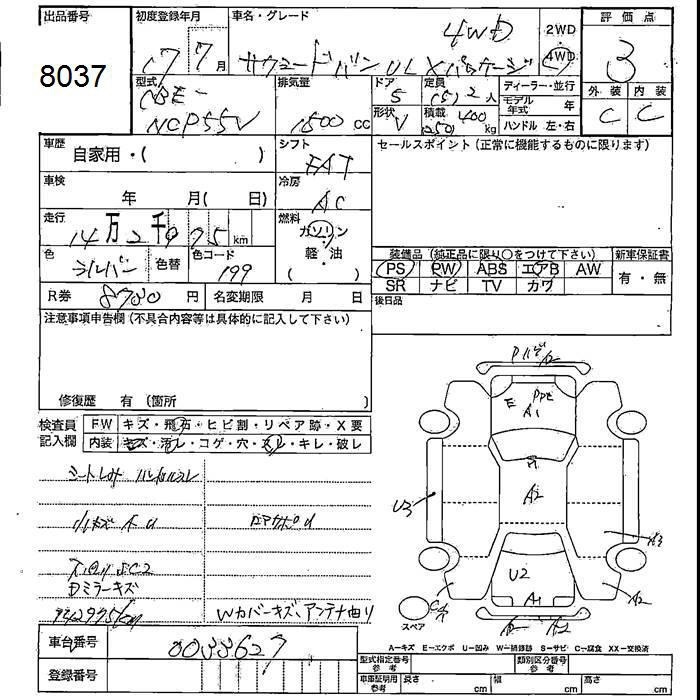 出品番号
8037
初度登録年月
17 7月
車名・グレード
4WD
サクシードバン UL Xパッケージ
2WD
4WD
評価点
3
外装 内装
C C
型式
CBE-
NCP55V
排気量
1500 cc
ドア
5
形状
V
定員
(5) 2人
積載
400
(250) kg
ディーラー・並行
モデル年式 年
ハンドル 左・右
車歴
自家用・( )
シフト
FAT
セールスポイント(正常に機能するものに限ります)
車検
年 月( 日)
冷房
AC
走行
14万2千995km
燃料
ガソリン
軽・油
( )
色
シルバー
色替
色コード
199
装備品(純正品に限り〇をつけて下さい)
新車保証書
PS PW ABS エアB AW
SR ナビ TV カワ
有・無
R券 8780 円
名変期限 月 日
後日品
注意事項申告欄(不具合内容等は具体的に記入して下さい)
修復歴 有(箇所 )
検査員記入欄
FW キズ・飛石・ヒビ割・リペア跡・X要
内装 キズ・汚レ・コゲ・穴・スレ・キレ・破レ
シートシミ ハンドルスレ
小キズ小U
Dミラーキズ
142995km
Wカバーキズ、アンテナ曲り
E
A1
A2
U3
A3
U2
A1
A2
スペア
A=キズ E=エクボ U=凹み W=補修跡 S=サビ C=腐食 XX=交換済
車台番号
0033627
登録番号
型式指定番号
参考
類別区分番号
参考
車庫証明用
参考
長さ cm
幅 cm
高さ cm